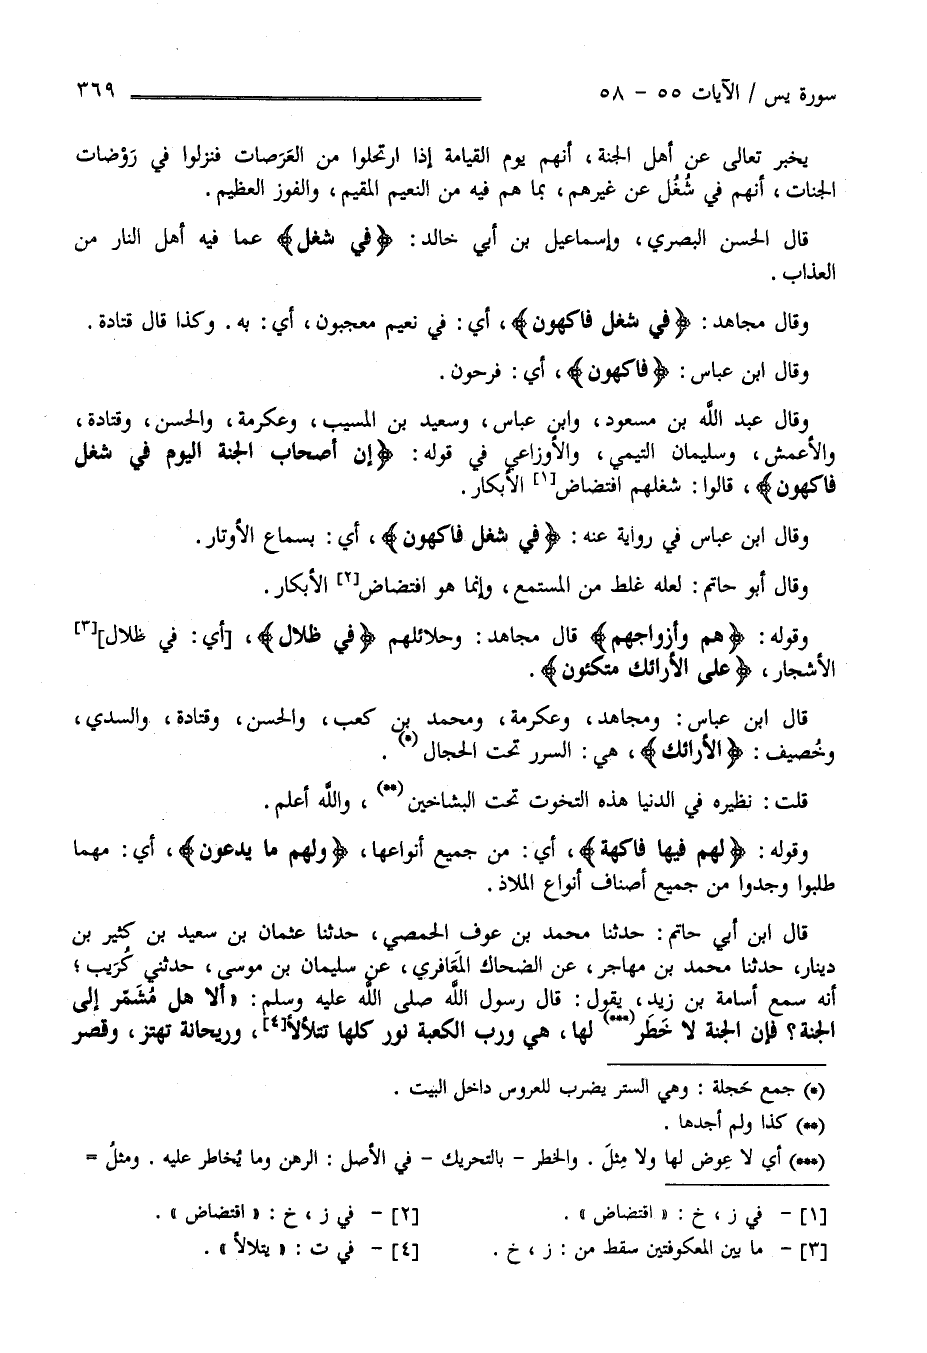 سورة يس / الآيات ٥٥ - ٥٨ ٣٦٩
يخبر تعالى عن أهل الجنة ، أنهم يوم القيامة إذا ارتحلوا من العَرَصات فنزلوا في رَوْضات
الجنات ، أنهم في شُغُل عن غيرهم ، بما هم فيه من النعيم المقيم ، والفوز العظيم .
قال الحسن البصري ، وإسماعيل بن أبي خالد : ﴿في شغل﴾ عما فيه أهل النار من
العذاب .
وقال مجاهد : ﴿في شغل فاكهون﴾ ، أي : في نعيم معجبون ، أي : به . وكذا قال قتادة .
وقال ابن عباس : ﴿فاكهون﴾ ، أي : فرحون .
وقال عبد اللَّه بن مسعود ، وابن عباس ، وسعيد بن المسيب ، وعكرمة ، والحسن ، وقتادة ،
والأعمش ، وسليمان التيمي ، والأوزاعي في قوله : ﴿إن أصحاب الجنة اليوم في شغل
فاكهون﴾ ، قالوا : شغلهم افتضاض[١] الأبكار .
وقال ابن عباس في رواية عنه : ﴿في شغل فاكهون﴾ ، أي : بسماع الأوتار .
وقال أبو حاتم : لعله غلط من المستمع ، وإنما هو افتضاض[٢] الأبكار .
وقوله : ﴿هم وأزواجهم﴾ قال مجاهد : وحلائلهم ﴿في ظلال﴾ ، [أي : في ظلال][٣]
الأشجار ، ﴿على الأرائك متكئون﴾ .
قال ابن عباس : ومجاهد ، وعكرمة ، ومحمد بن كعب ، والحسن ، وقتادة ، والسدي ،
وخُصيف : ﴿الأرائك﴾ ، هي : السرر تحت الحجال (*) .
قلت : نظيره في الدنيا هذه التخوت تحت البشاخين (**) ، واللَّه أعلم .
وقوله : ﴿لهم فيها فاكهة﴾ ، أي : من جميع أنواعها ، ﴿ولهم ما يدعون﴾ ، أي : مهما
طلبوا وجدوا من جميع أصناف أنواع الملاذ .
قال ابن أبي حاتم : حدثنا محمد بن عوف الحمصي ، حدثنا عثمان بن سعيد بن كثير بن
دينار، حدثنا محمد بن مهاجر ، عن الضحاك المَعَافري ، عن سليمان بن موسى ، حدثني كُرَيب ؛
أنه سمع أسامة بن زيد ، يقول : قال رسول اللَّه صلى اللَّه عليه وسلم : « ألا هل مُشَمّر إلى
الجنة ؟ فإن الجنة لا خَطَر(***) لها ، هي ورب الكعبة نور كلها تتلألأ[٤] ، وريحانة تهتز ، وقصر
(*) جمع حَجلة : وهي الستر يضرب للعروس داخل البيت .
(**) كذا ولم أجدها .
(***) أي لا عِوض لها ولا مِثلَ . والخطر - بالتحريك - في الأصل : الرهن وما يُخاطر عليه . ومثلُ =
[١] - في ز ، خ : « اقتضاض » . [٢] - في ز ، خ : « اقتضاض » .
[٣] - ما بين المعكوفتين سقط من : ز ، خ . [٤] - في ت : « يتلالأ » .